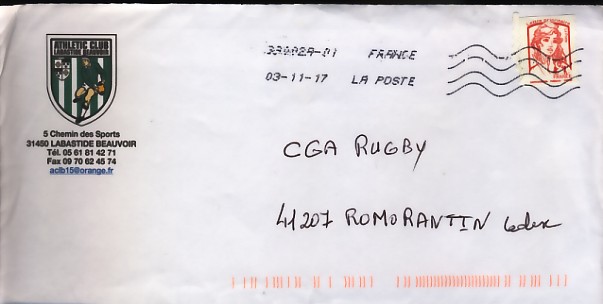 ATHLETIC CLUB
LABASTIDE BEAUVOIR
5 Chemin des Sports
31450 LABASTIDE BEAUVOIR
Tél. 05 61 81 42 71
Fax 09 70 62 45 74
aclb15@orange.fr
FRANCE
03-11-17 LA POSTE
CGA RUGBY
41207 ROMORANTIN Cedex